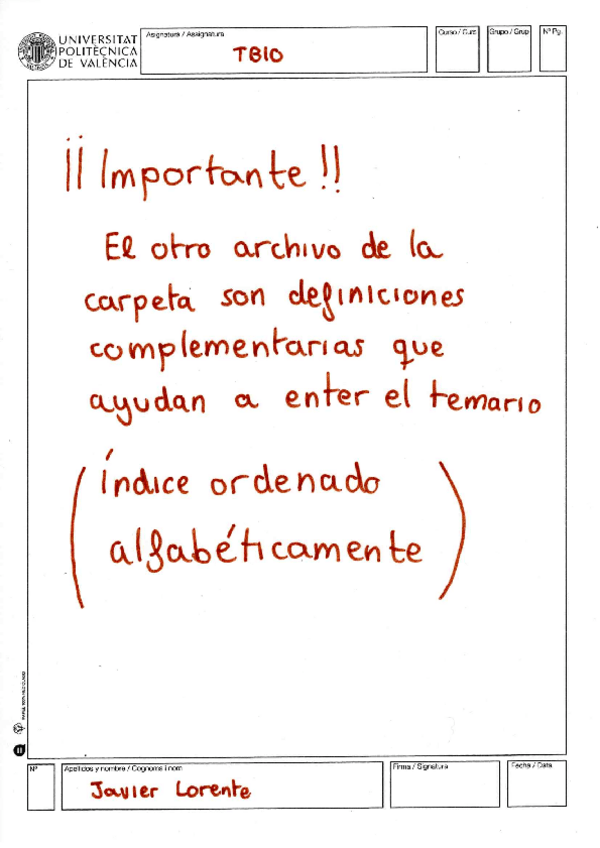 UNIVERSITAT
POLITÈCNICA
DE VALÈNCIA
Asignatura / Assignatura
TBIO
Curso / Curs
Grupo / Grup
Nº Pg.
¡¡Importante!!
El otro archivo de la
carpeta son definiciones
complementarias que
ayudan a enter el temario
(índice ordenado
alfabéticamente)
Nº
Apellidos y nombre / Cognoms i nom
Javier Lorente
Firma / Signatura
Fecha / Data